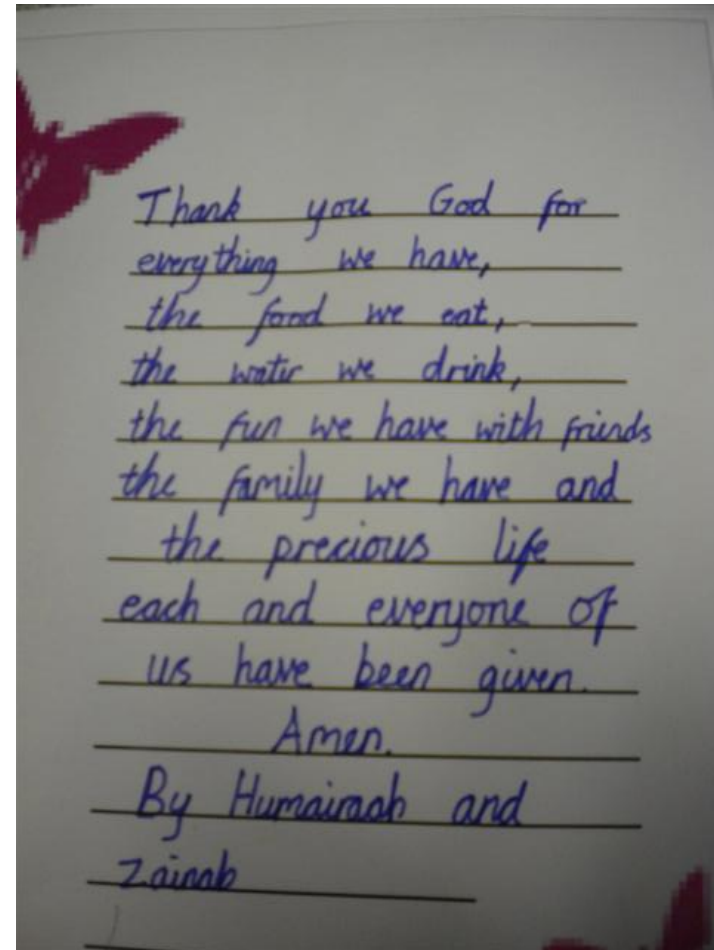 Thank you God for
everything we have,
the food we eat,
the water we drink,
the fun we have with friends
the family we have and
the precious life
each and everyone of
us have been given.
Amen.
By Humairaah and
Zainab